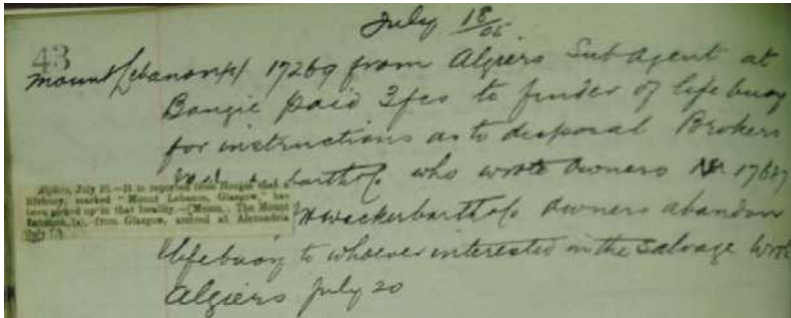 July 18/05
43
Mount Lebanon(s) 17269 from Algiers Sub Agent at
Bougie paid 3fcs to finder of lifebuoy
for instructions as to disposal Brokers
who wrote owners 17687
Algiers, July 10.—It is reported from Bougie that a
lifebuoy, marked "Mount Lebanon, Glasgow," has
been picked up in that locality.—[Memo. The Mount
Lebanon (s), from Glasgow, arrived at Alexandria
July 7.]
Wackerbarth & Co owners abandon
lifebuoy to whoever interested in the salvage Wrote
Algiers July 20